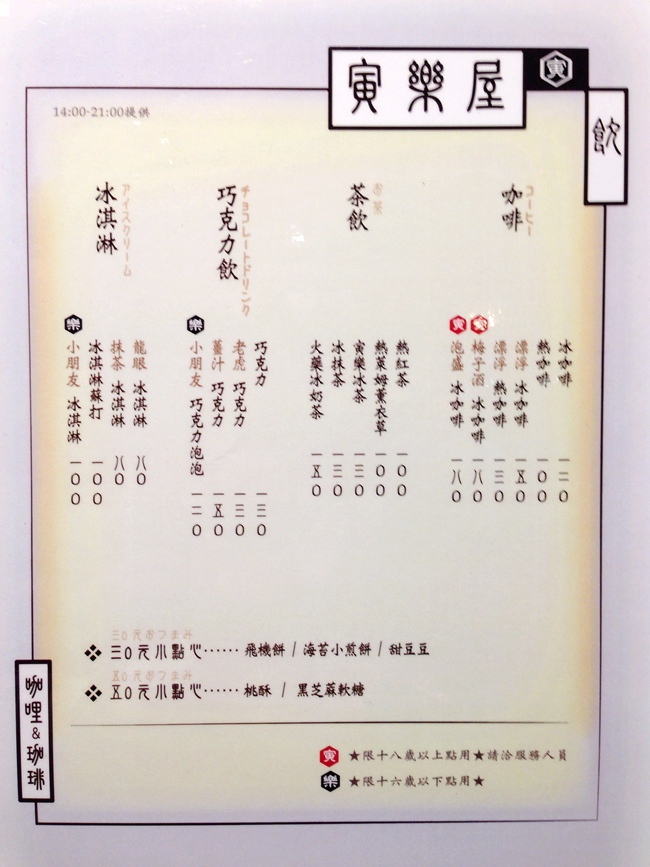 寅樂屋
寅
飲
14:00-21:00提供
コーヒー
咖啡
冰咖啡 一二〇
熱咖啡 一〇〇
漂浮 冰咖啡 一五〇
漂浮 熱咖啡 一三〇
寅 梅子酒 冰咖啡 一八〇
寅 泡盛 冰咖啡 一八〇
お茶
茶飲
熱紅茶 一〇〇
熱萊姆薰衣草 一〇〇
寅樂冰茶 一三〇
冰抹茶 一三〇
火藥冰奶茶 一五〇
チョコレートドリンク
巧克力飲
巧克力 一三〇
老虎 巧克力 一三〇
薑汁 巧克力 一五〇
樂 小朋友 巧克力泡泡 一二〇
アイスクリーム
冰淇淋
龍眼 冰淇淋 八〇
抹茶 冰淇淋 八〇
冰淇淋蘇打 一〇〇
樂 小朋友 冰淇淋 一〇〇
三0元おつまみ
三0元小點心⋯⋯飛機餅 / 海苔小煎餅 / 甜豆豆
五0元おつまみ
五0元小點心⋯⋯桃酥 / 黑芝蔴軟糖
咖哩&珈琲
寅 ★限十八歲以上點用★請洽服務人員
樂 ★限十六歲以下點用★